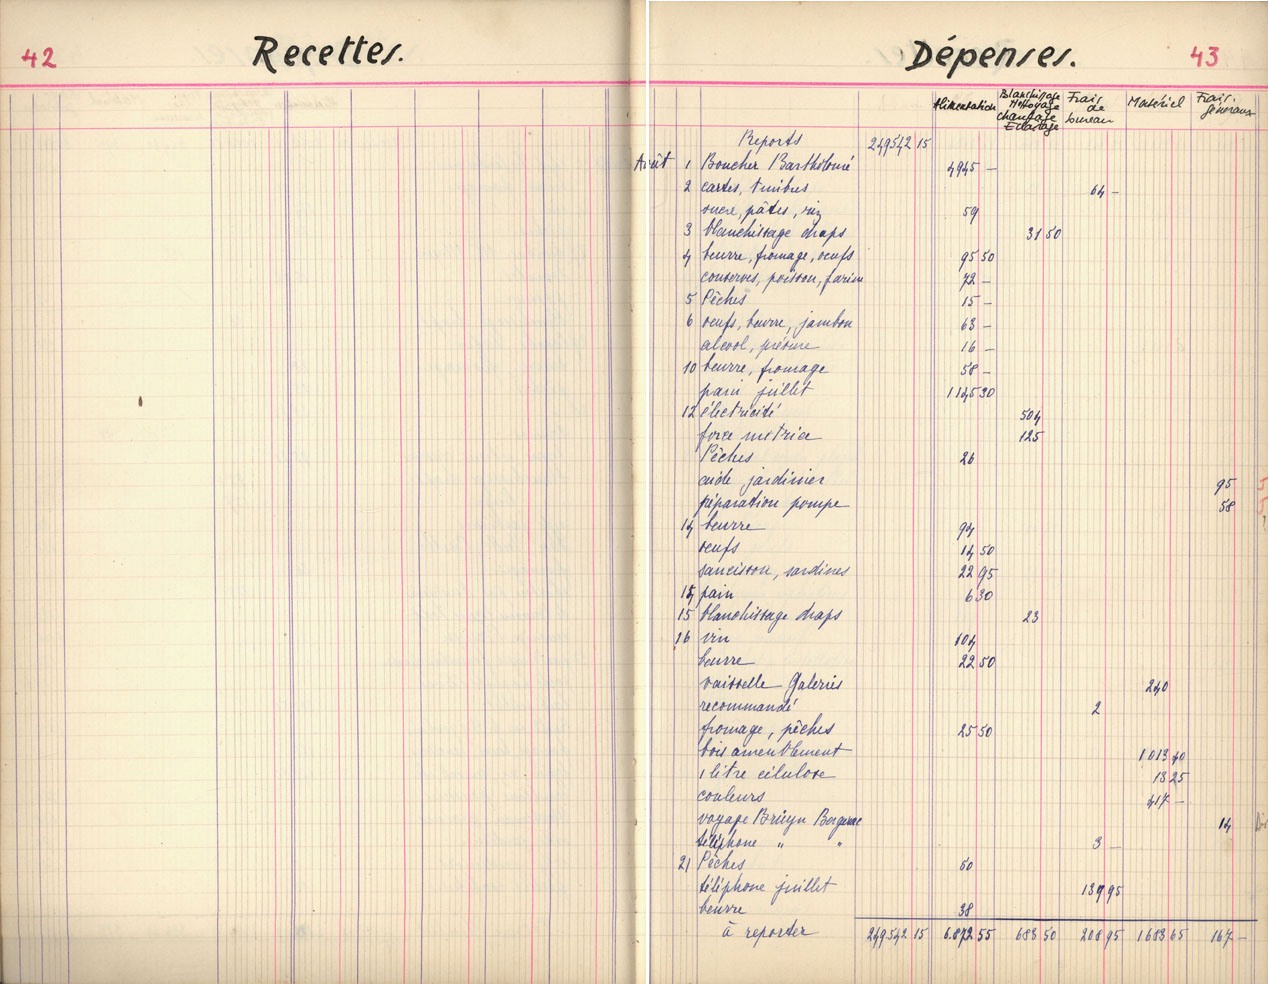 42 Recettes.
Dépenses. 43
Alimentation Blanchissage Nettoyage Chauffage Eclairage Frais de bureau Matériel Frais Généraux
Reports 249542 15
Août 1 Boucher Barthélomé 4945 –
2 cartes, timbres 64 –
sucre, pâtes, riz 59
3 blanchissage draps 31 50
4 beurre, fromage, oeufs 95 50
conserves, poisson, farine 72 –
5 Pêches 15 –
6 oeufs, beurre, jambon 63 –
alcool, présure 16 –
10 beurre, fromage 58 –
pain juillet 1145 30
12 électricité 504
force motrice 125
Pêches 26
aide jardinier 95
réparation pompe 58
14 beurre 94
oeufs 14 50
saucisson, sardines 22 95
15 pain 6 30
15 blanchissage draps 23
16 vin 104
beurre 22 50
vaisselle Galeries 240
recommandé 2
fromage, pêches 25 50
bois ameublement 1013 40
1 litre célulose 13 25
couleurs 417 –
voyage Bruyn Bergerac 14
téléphone " " 3 –
21 Pêches 50
téléphone juillet 139 95
beurre 38
à reporter 249542 15 6.872 55 683 50 208 95 1683 65 167 –